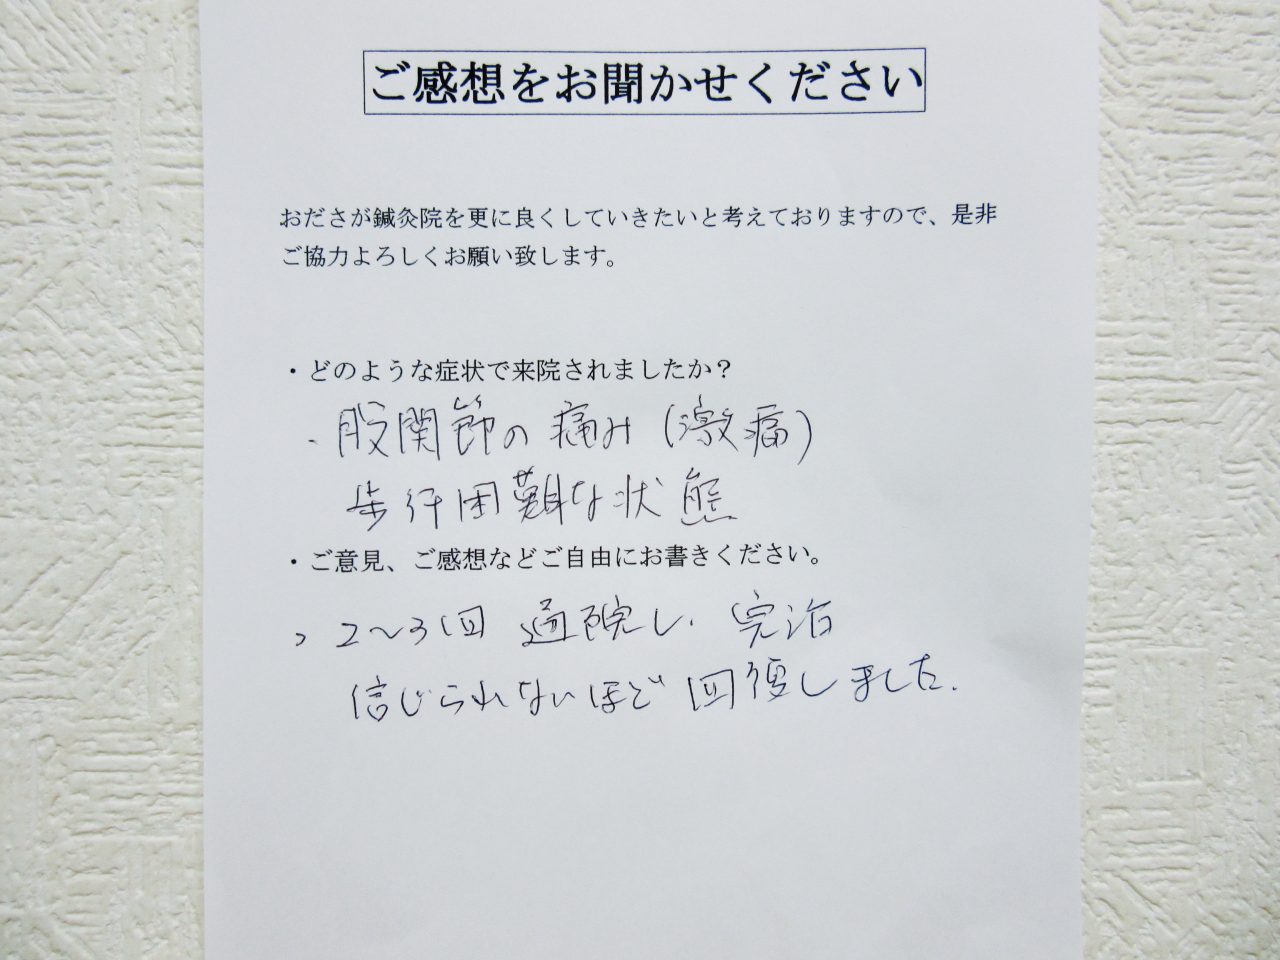 ご感想をお聞かせください
おださが鍼灸院を更に良くしていきたいと考えておりますので、是非
ご協力よろしくお願い致します。
・どのような症状で来院されましたか？
・股関節の痛み(激痛)
歩行困難な状態
・ご意見、ご感想などご自由にお書きください。
、2〜3回 通院し、完治
信じられないほど 回復しました.